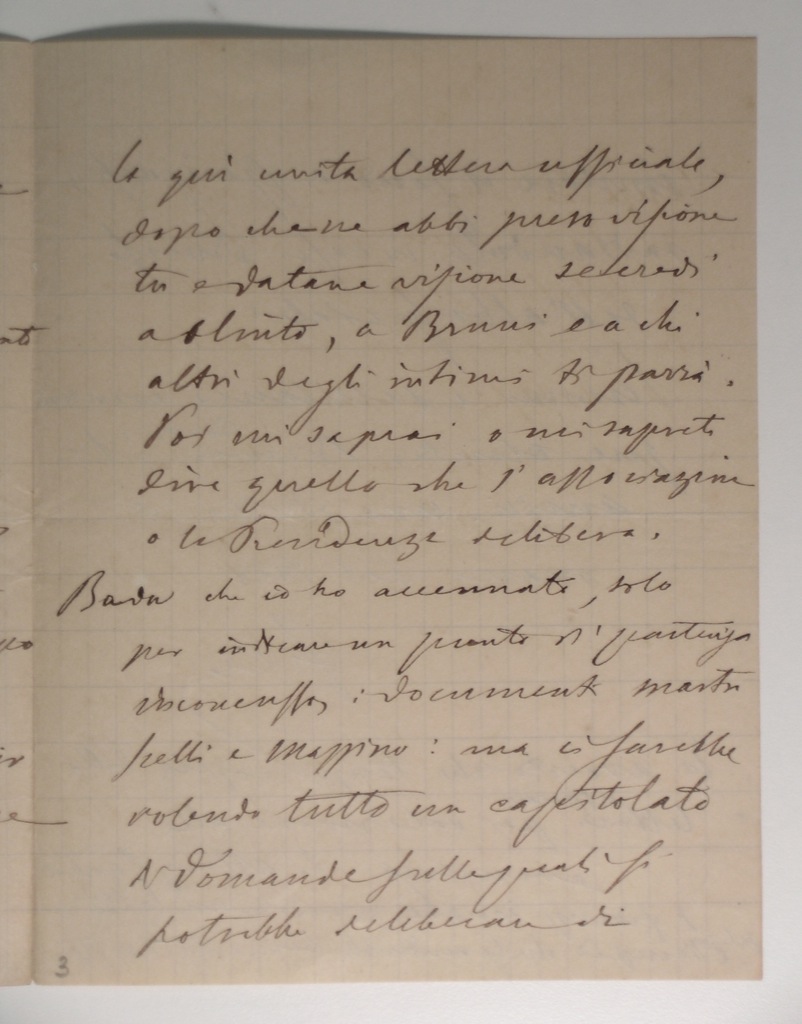 la qui unita lettera ufficiale,
dopo che ne abbi preso visione
tu e datane visione se credi
a Olinto, a Bruni e a chi
altri degli intimi ti parrà.
Poi mi saprai o mi saprete
dire quello che l'associazione
o la Presidenza delibera.
Bada che io ho accennato, solo
per indicare un punto di partenza
inconcusso, i documenti mastri
scelli e Massimo: ma ci sarebbe
volendo tutto un capitolato
di domande sulle quali si
potrebbe deliberare di
3